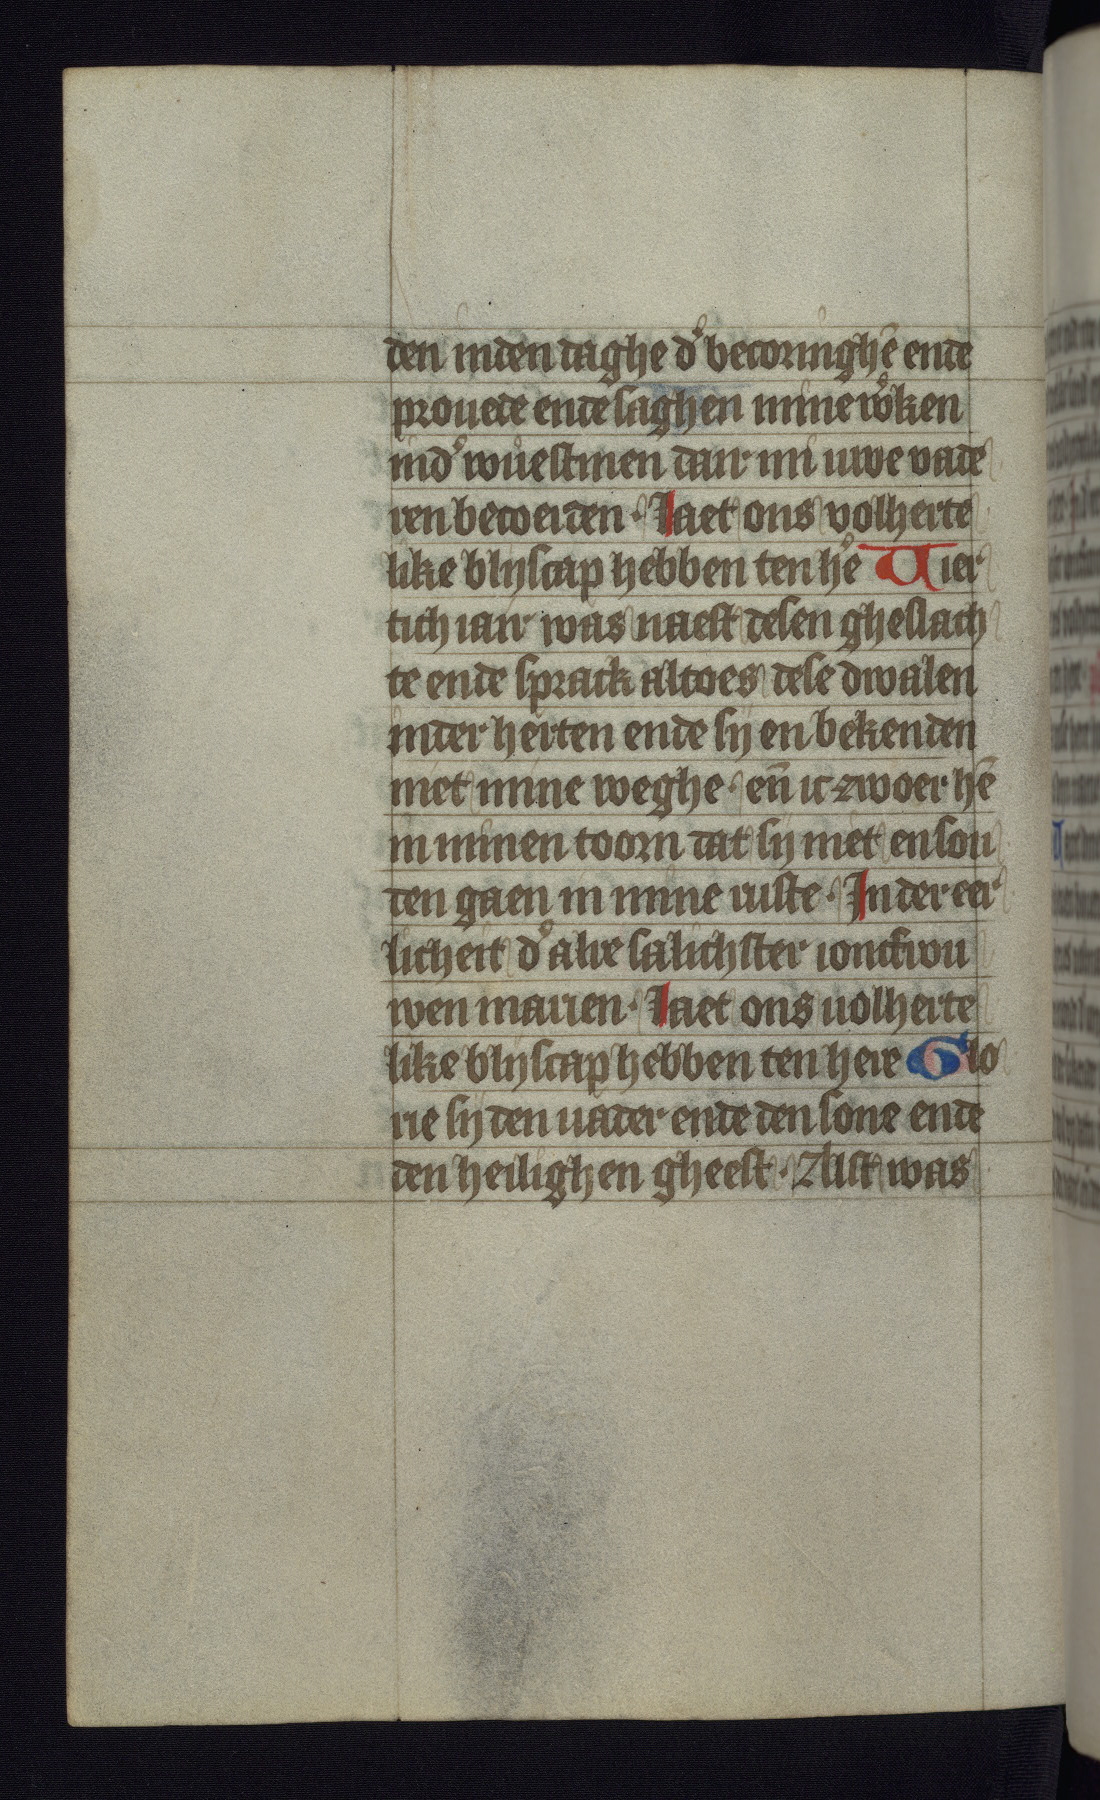 den inden daghe d' becoringhē ende
prouede ende saghen mine w'ken
ind' wuestinen daer mi uwe vade
ren becoerden · Laet ons volherte
like blyscap hebben ten h'e Vier
tich iaer was naest desen gheslach
te ende sprack altoes dese dwalen
inder herten ende sy en bekenden
niet mine weghe · eñ ic zwoer hē
in minen toorn dat sy niet en sou
den gaen in mine ruste · In der eer
licheit d' alre salichster ioncfrou
wen marien · Laet ons uolherte
like blyscap hebben ten here Glo
rie sy den uader ende den sone ende
den heilighen gheest · Alst was